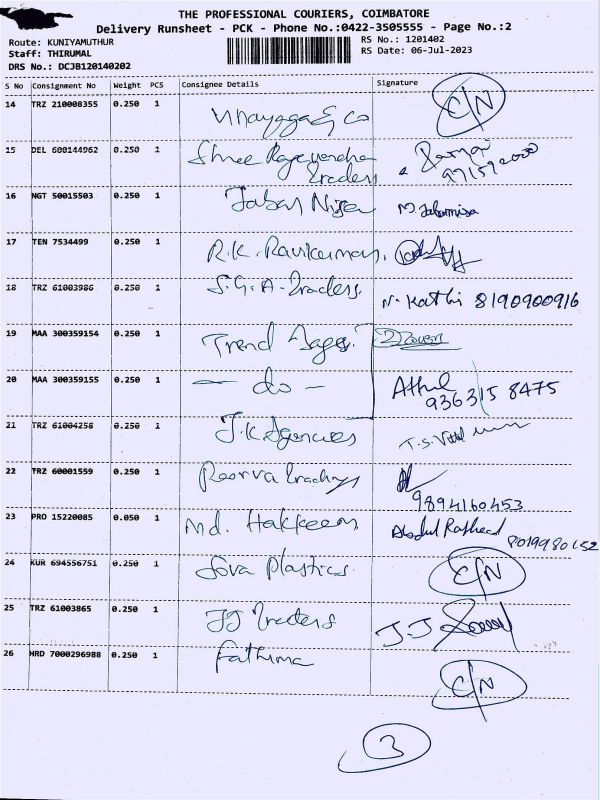 THE PROFESSIONAL COURIERS, COIMBATORE
Delivery Runsheet - PCK - Phone No.:0422-3505555 - Page No.:2
Route: KUNIYAMUTHUR
RS No.: 1201402
Staff: THIRUMAL
RS Date: 06-Jul-2023
DRS No.: DCJB120140202
S No Consignment No Weight PCS Consignee Details Signature
14 TRZ 210008355 0.250 1 Vinayaga & co C/N
15 DEL 600144962 0.250 1 Shree Traders
16 NGT 50015503 0.250 1
17 TEN 7534499 0.250 1 R.K. Ravikumar.
18 TRZ 61003986 0.250 1 S.G.A. Traders. N. Kathi 8190900916
19 MAA 300359154 0.250 1 Trend
20 MAA 300359155 0.250 1 — do — Athul
936315 8475
21 TRZ 61004258 0.250 1 J.K Agencies T.S.
22 TRZ 60001559 0.250 1 9894160453
23 PRO 15220085 0.050 1 Md. Hakkeem Abdul Rasheed
24 KUR 694556751 0.250 1 Plastics C/N
25 TRZ 61003865 0.250 1 JJ Traders J.J
26 HRD 7000296988 0.250 1 Fathima C/N
3